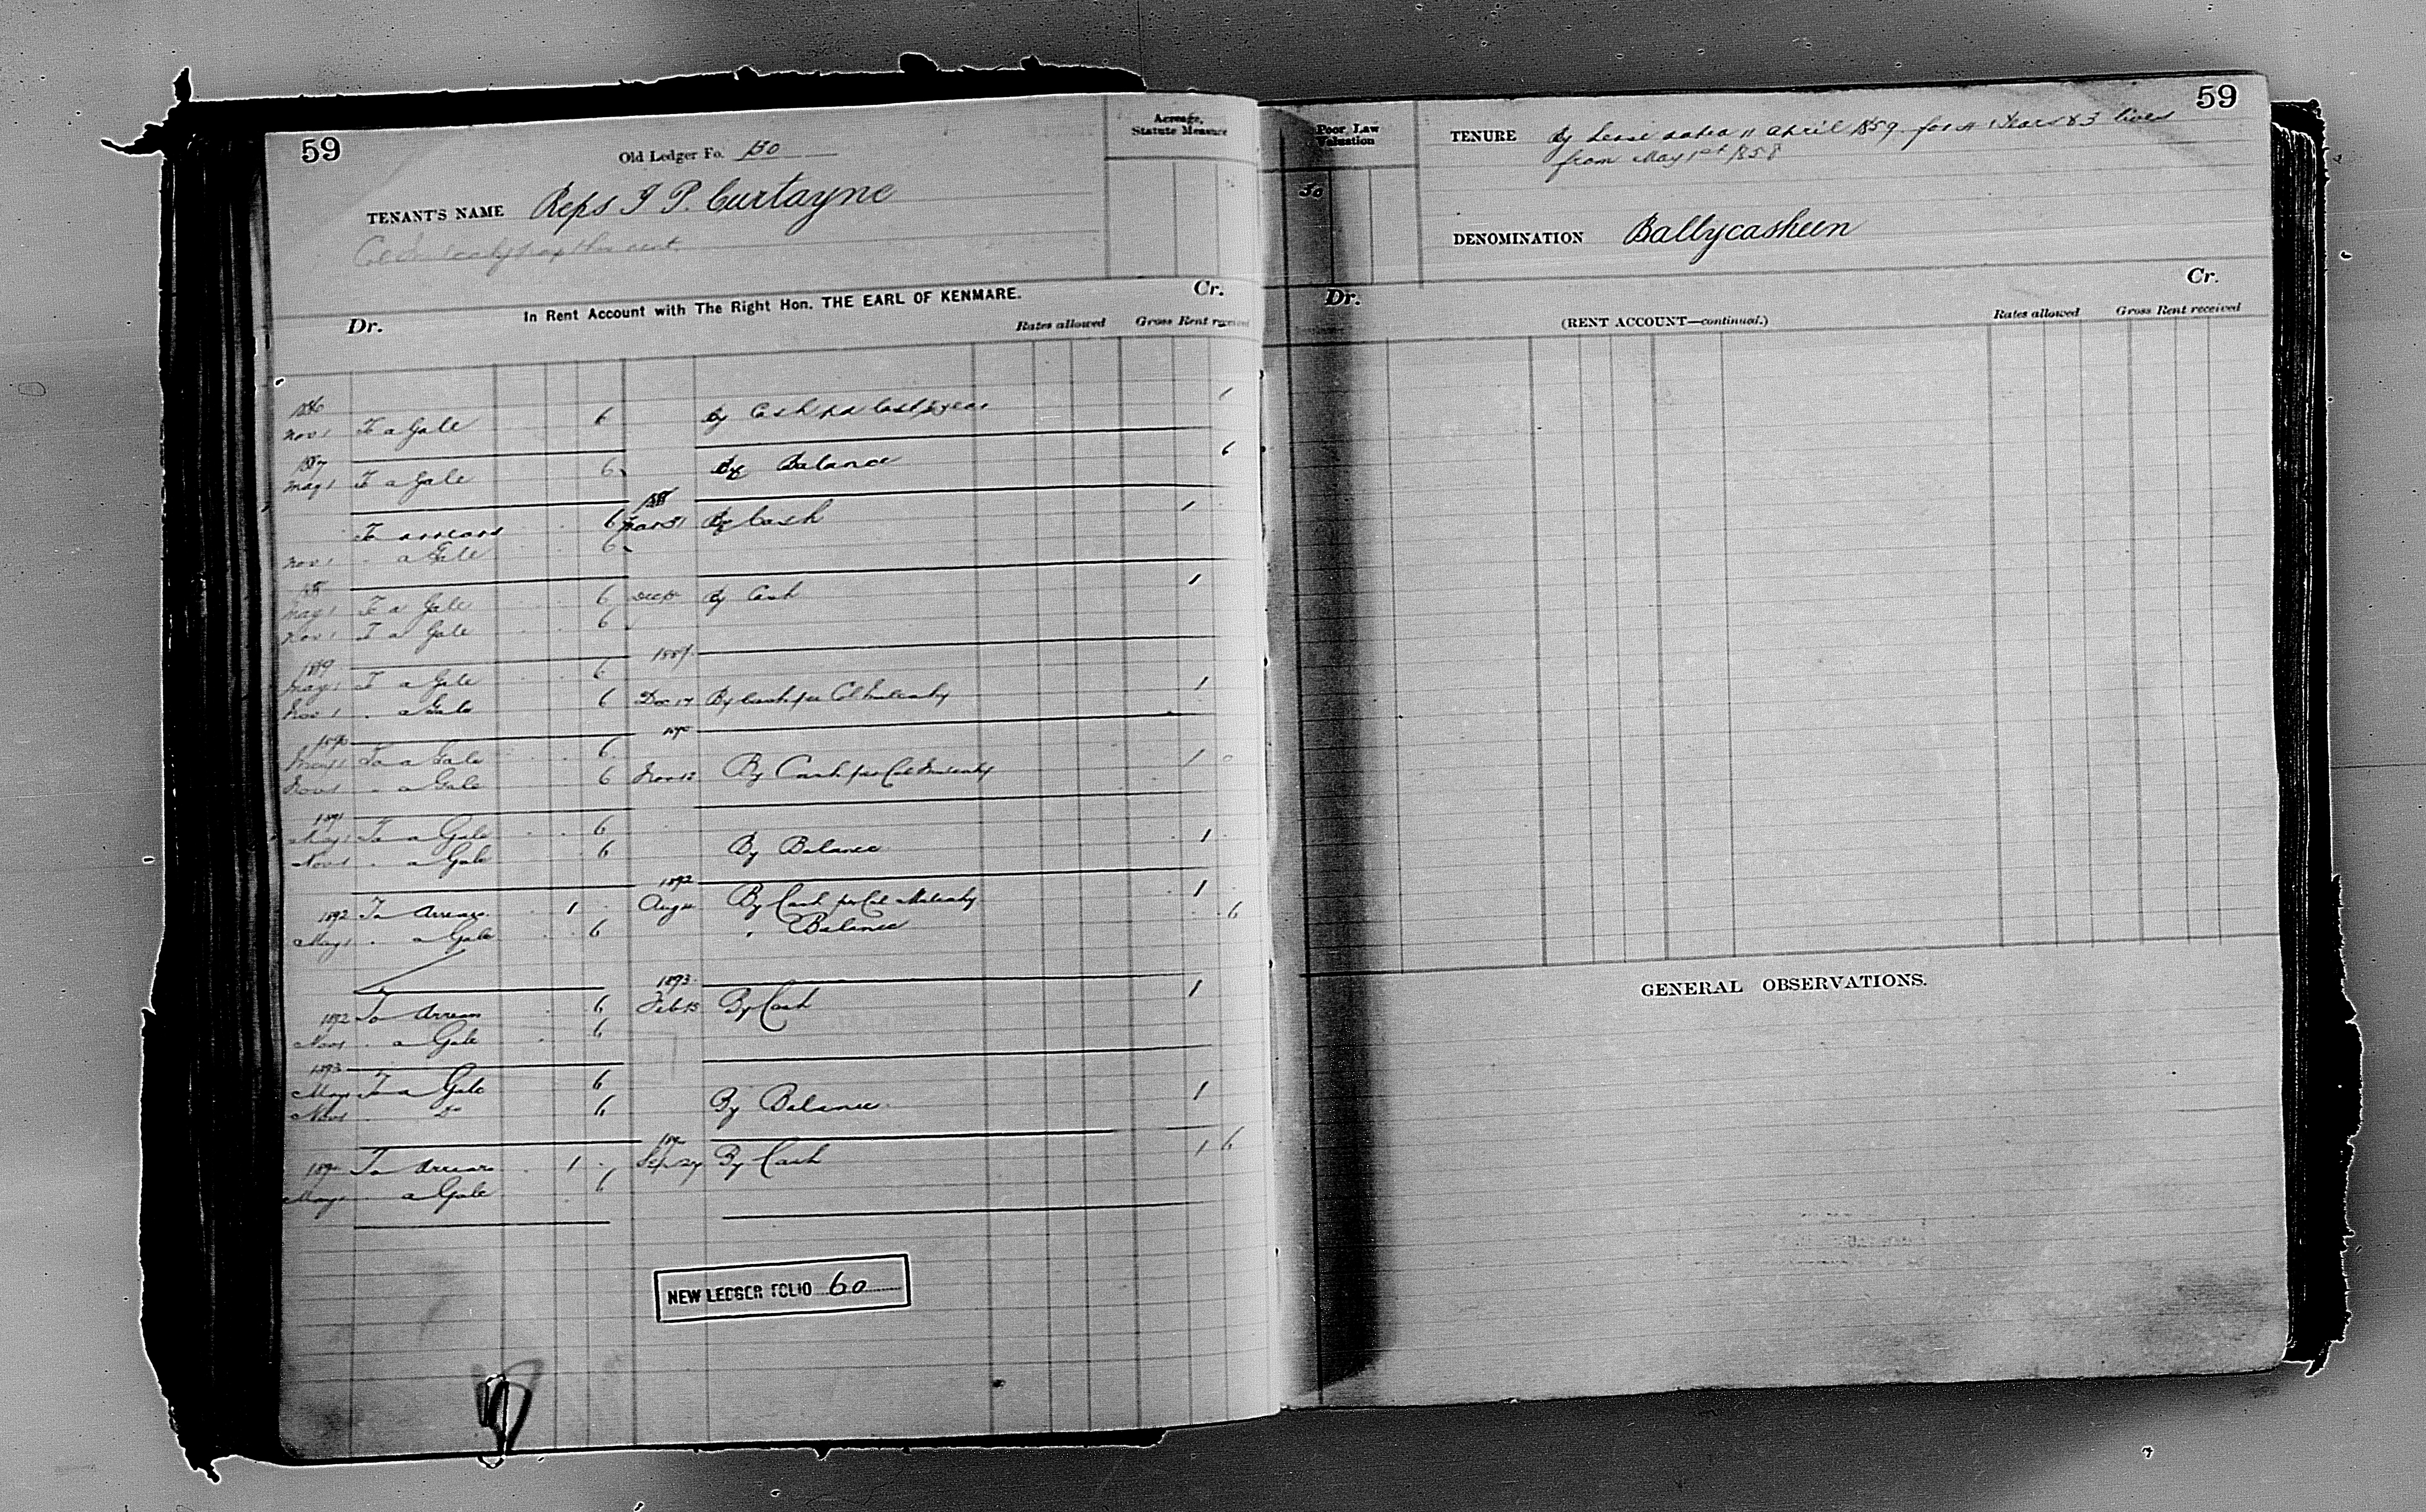 59
Old Ledger Fo. 130
Acreage,
Statute Measure
TENANT'S NAME Reps J P. Curtayne
In Rent Account with The Right Hon. THE EARL OF KENMARE.
Dr. Cr.
Rates allowed Gross Rent received
1886
Nov 1 To a Gale 6 By Cash pd last year 1
1887
May 1 To a Gale 6 By Balance 6
188
To arrears 6 31 By Cash 1
Nov 1 " a Gale 6
188
May 1 To a Gale 6 Dec By Cash 1
Nov 1 To a Gale 6
1889 1889
May 1 To a Gale 6
Nov 1 " a Gale 6 Dec 17 By Cash per Col 1
1890 1890
May 1 To a Gale 6
Nov 1 " a Gale 6 Nov 12 By Cash per Col 1
1891
May 1 To a Gale 6
Nov 1 " a Gale 6 By Balance 1
1892
1892 To Arrears 1 Aug By Cash per Col 1
May 1 " a Gale 6 " Balance 6
1893
1892 To Arrears 6 Feb 15 By Cash 1
Nov 1 " a Gale 6
1893
May 1 To a Gale 6
Nov 1 Do 6 By Balance 1
189
189 To Arrears 1 Sep 27 By Cash 1 6
May 1 a Gale 6
NEW LEDGER FOLIO 60
59
Poor Law
Valuation
50
TENURE By Lease dated 11 April 1859 for Years & 3 lives
from May 1st 1858
DENOMINATION Ballycasheen
Dr. Cr.
(RENT ACCOUNT—continued.)
Rates allowed Gross Rent received
GENERAL OBSERVATIONS.